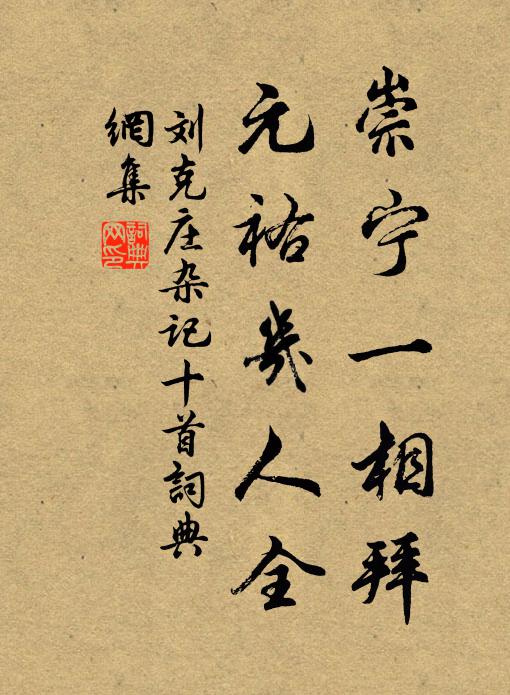 崇宁一相拜
元祐几人全
刘克庄杂记十首詞典
網集
詞典
网印